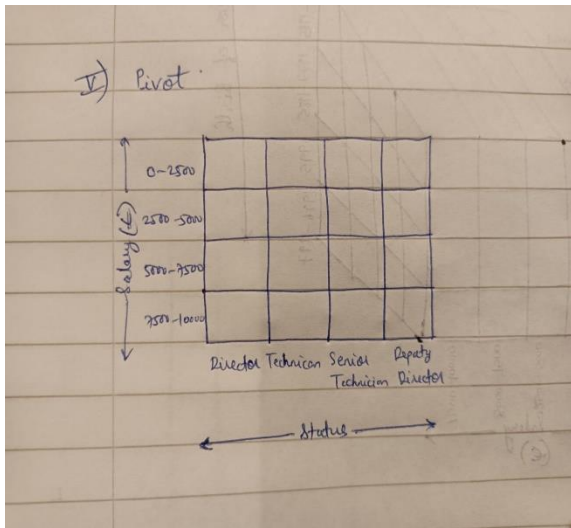 V) Pivot
0-2500
2500-5000
5000-7500
7500-10000
Salary (£)
Director Technican Senior Technician Deputy Director
Status